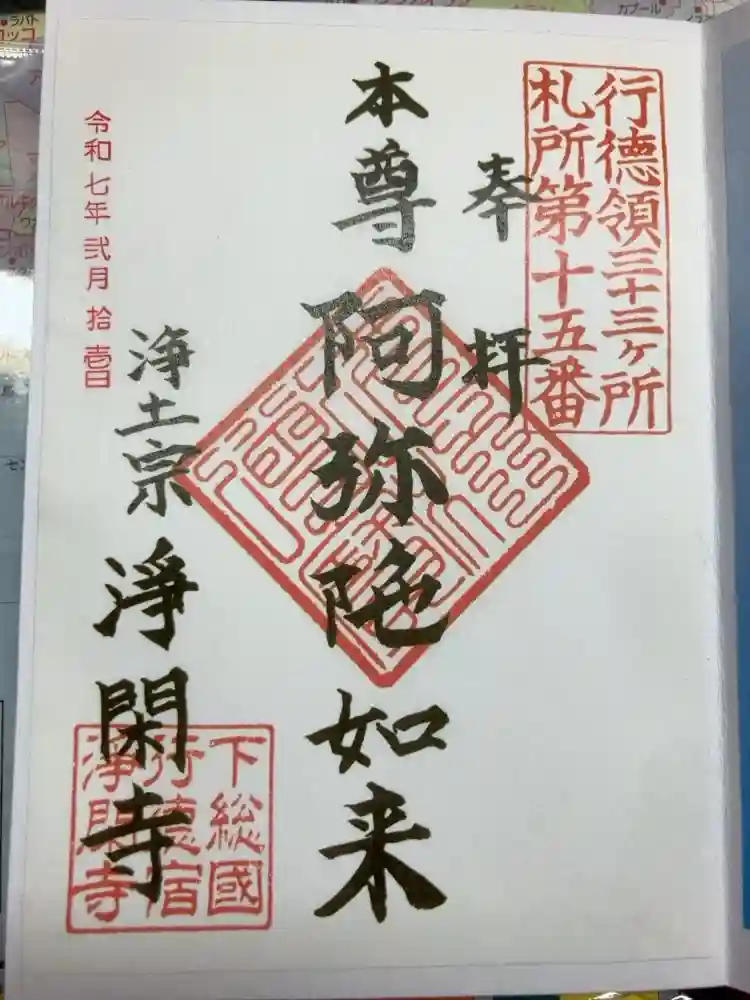 行徳領三十三ヶ所
札所第十五番
奉拝
本尊阿弥陀如来
浄土宗淨閑寺
令和七年弐月拾壱日
下総國
行徳宿
淨閑寺